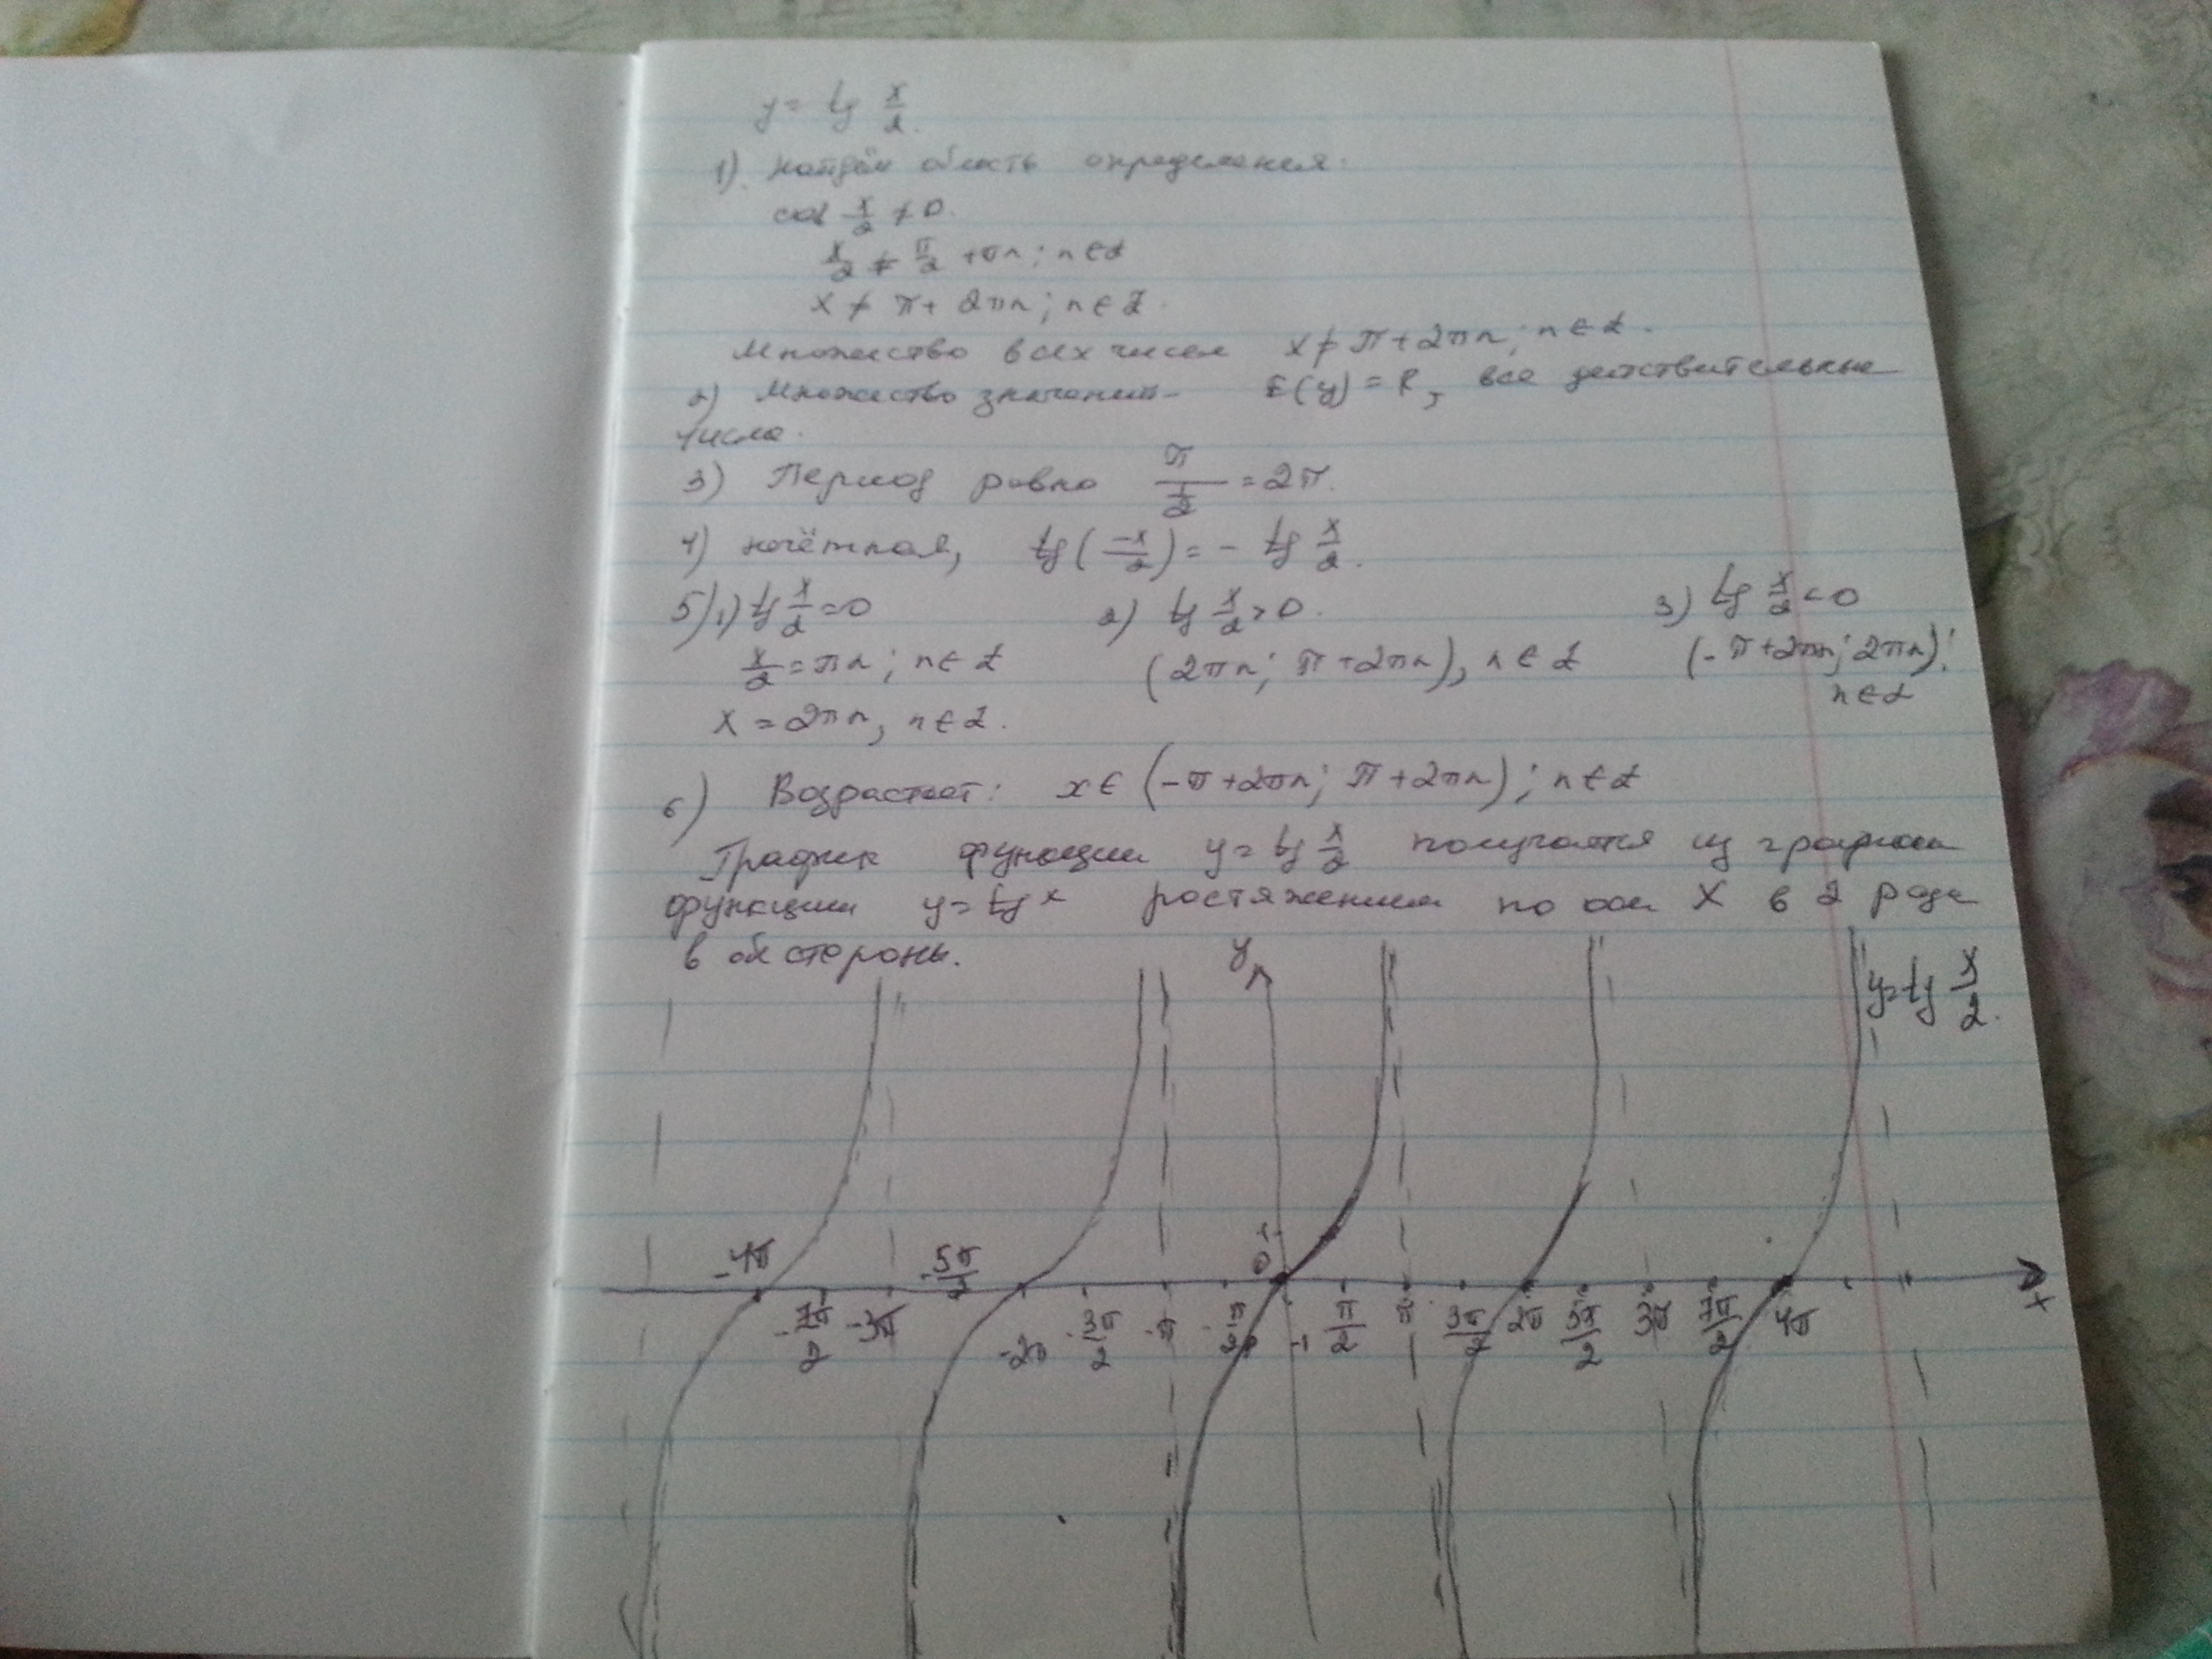 y = tg x/2.
1) Найдём область определения:
cos x/2 ≠ 0.
x/2 ≠ π/2 + πn; n ∈ Z
x ≠ π + 2πn; n ∈ Z.
Множество всех чисел x ≠ π + 2πn; n ∈ Z.
2) Множество значений - E(y) = R, все действительные
числа.
3) Период равно π/(1/2) = 2π.
4) нечётная, tg(-x/2) = - tg x/2.
5) 1) tg x/2 = 0 2) tg x/2 > 0. 3) tg x/2 < 0
x/2 = πn; n ∈ Z (2πn; π + 2πn), n ∈ Z (-π + 2πn; 2πn);
n ∈ Z
x = 2πn, n ∈ Z.
6) Возрастает: x ∈ (-π + 2πn; π + 2πn); n ∈ Z
График функции y = tg x/2 получается из графика
функции y = tg x растяжением по оси X в 2 раза
в об стороны.
y y = tg x/2.
1
-4π -5π/2 0
-7π/2 -3π -2π -3π/2 -π -π/2 -1 π/2 π 3π/2 2π 5π/2 3π 7π/2 4π x